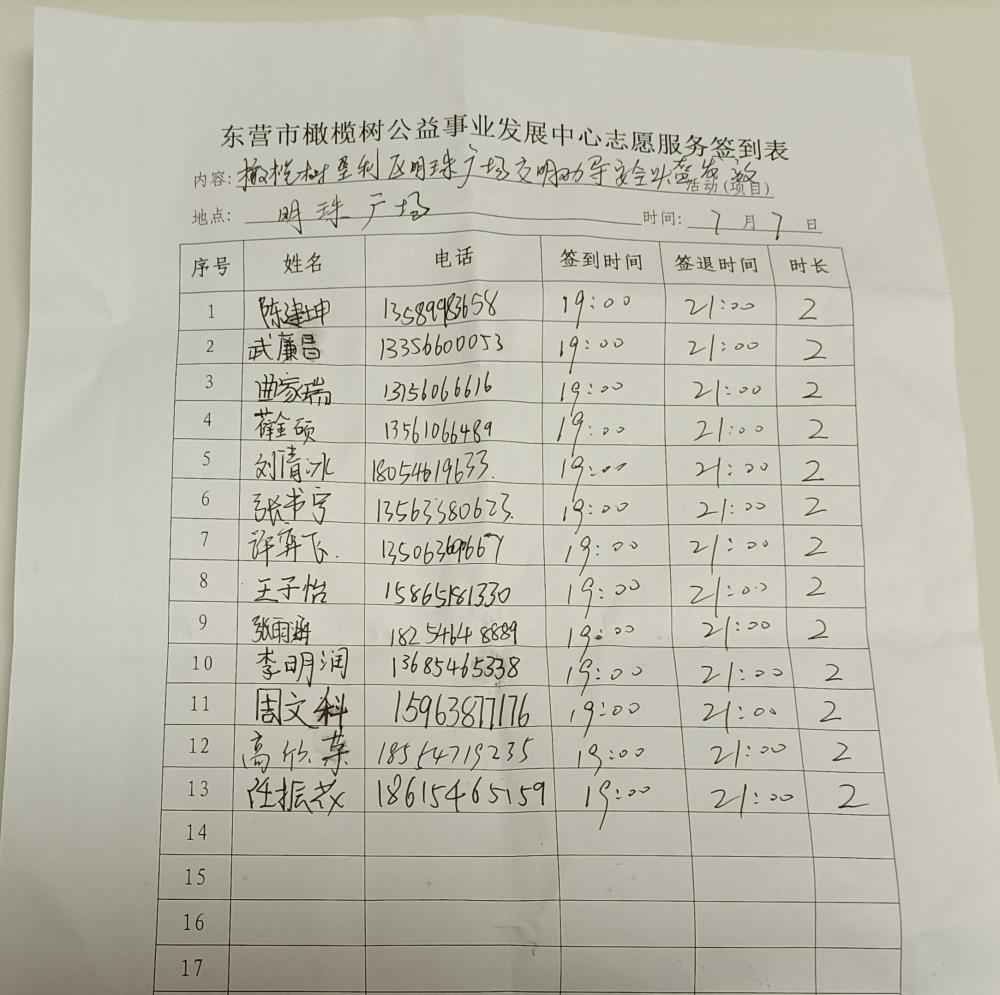 东营市橄榄树公益事业发展中心志愿服务签到表
内容: 橄榄树垦利区明珠广场文明劝导安全 活动(项目)
地点: 明珠广场 时间: 7月7日
序号 姓名 电话 签到时间 签退时间 时长
1 陈建坤 13589983658 19:00 21:00 2
2 武廉昌 13356600053 19:00 21:00 2
3 曲家瑞 13156066616 19:00 21:00 2
4 薛金硕 13561066489 19:00 21:00 2
5 刘清冰 18054619633. 19:00 21:00 2
6 张书宁 13563380623. 19:00 21:00 2
7 许弈飞. 19:00 21:00 2
8 王子怡 15865181330 19:00 21:00 2
9 张雨涵 18254648889 19:00 21:00 2
10 李明润 13685465338 19:00 21:00 2
11 周文科 15963877176 19:00 21:00 2
12 高欣荣 18554719235 19:00 21:00 2
13 任振茂 18615465159 19:00 21:00 2
14
15
16
17